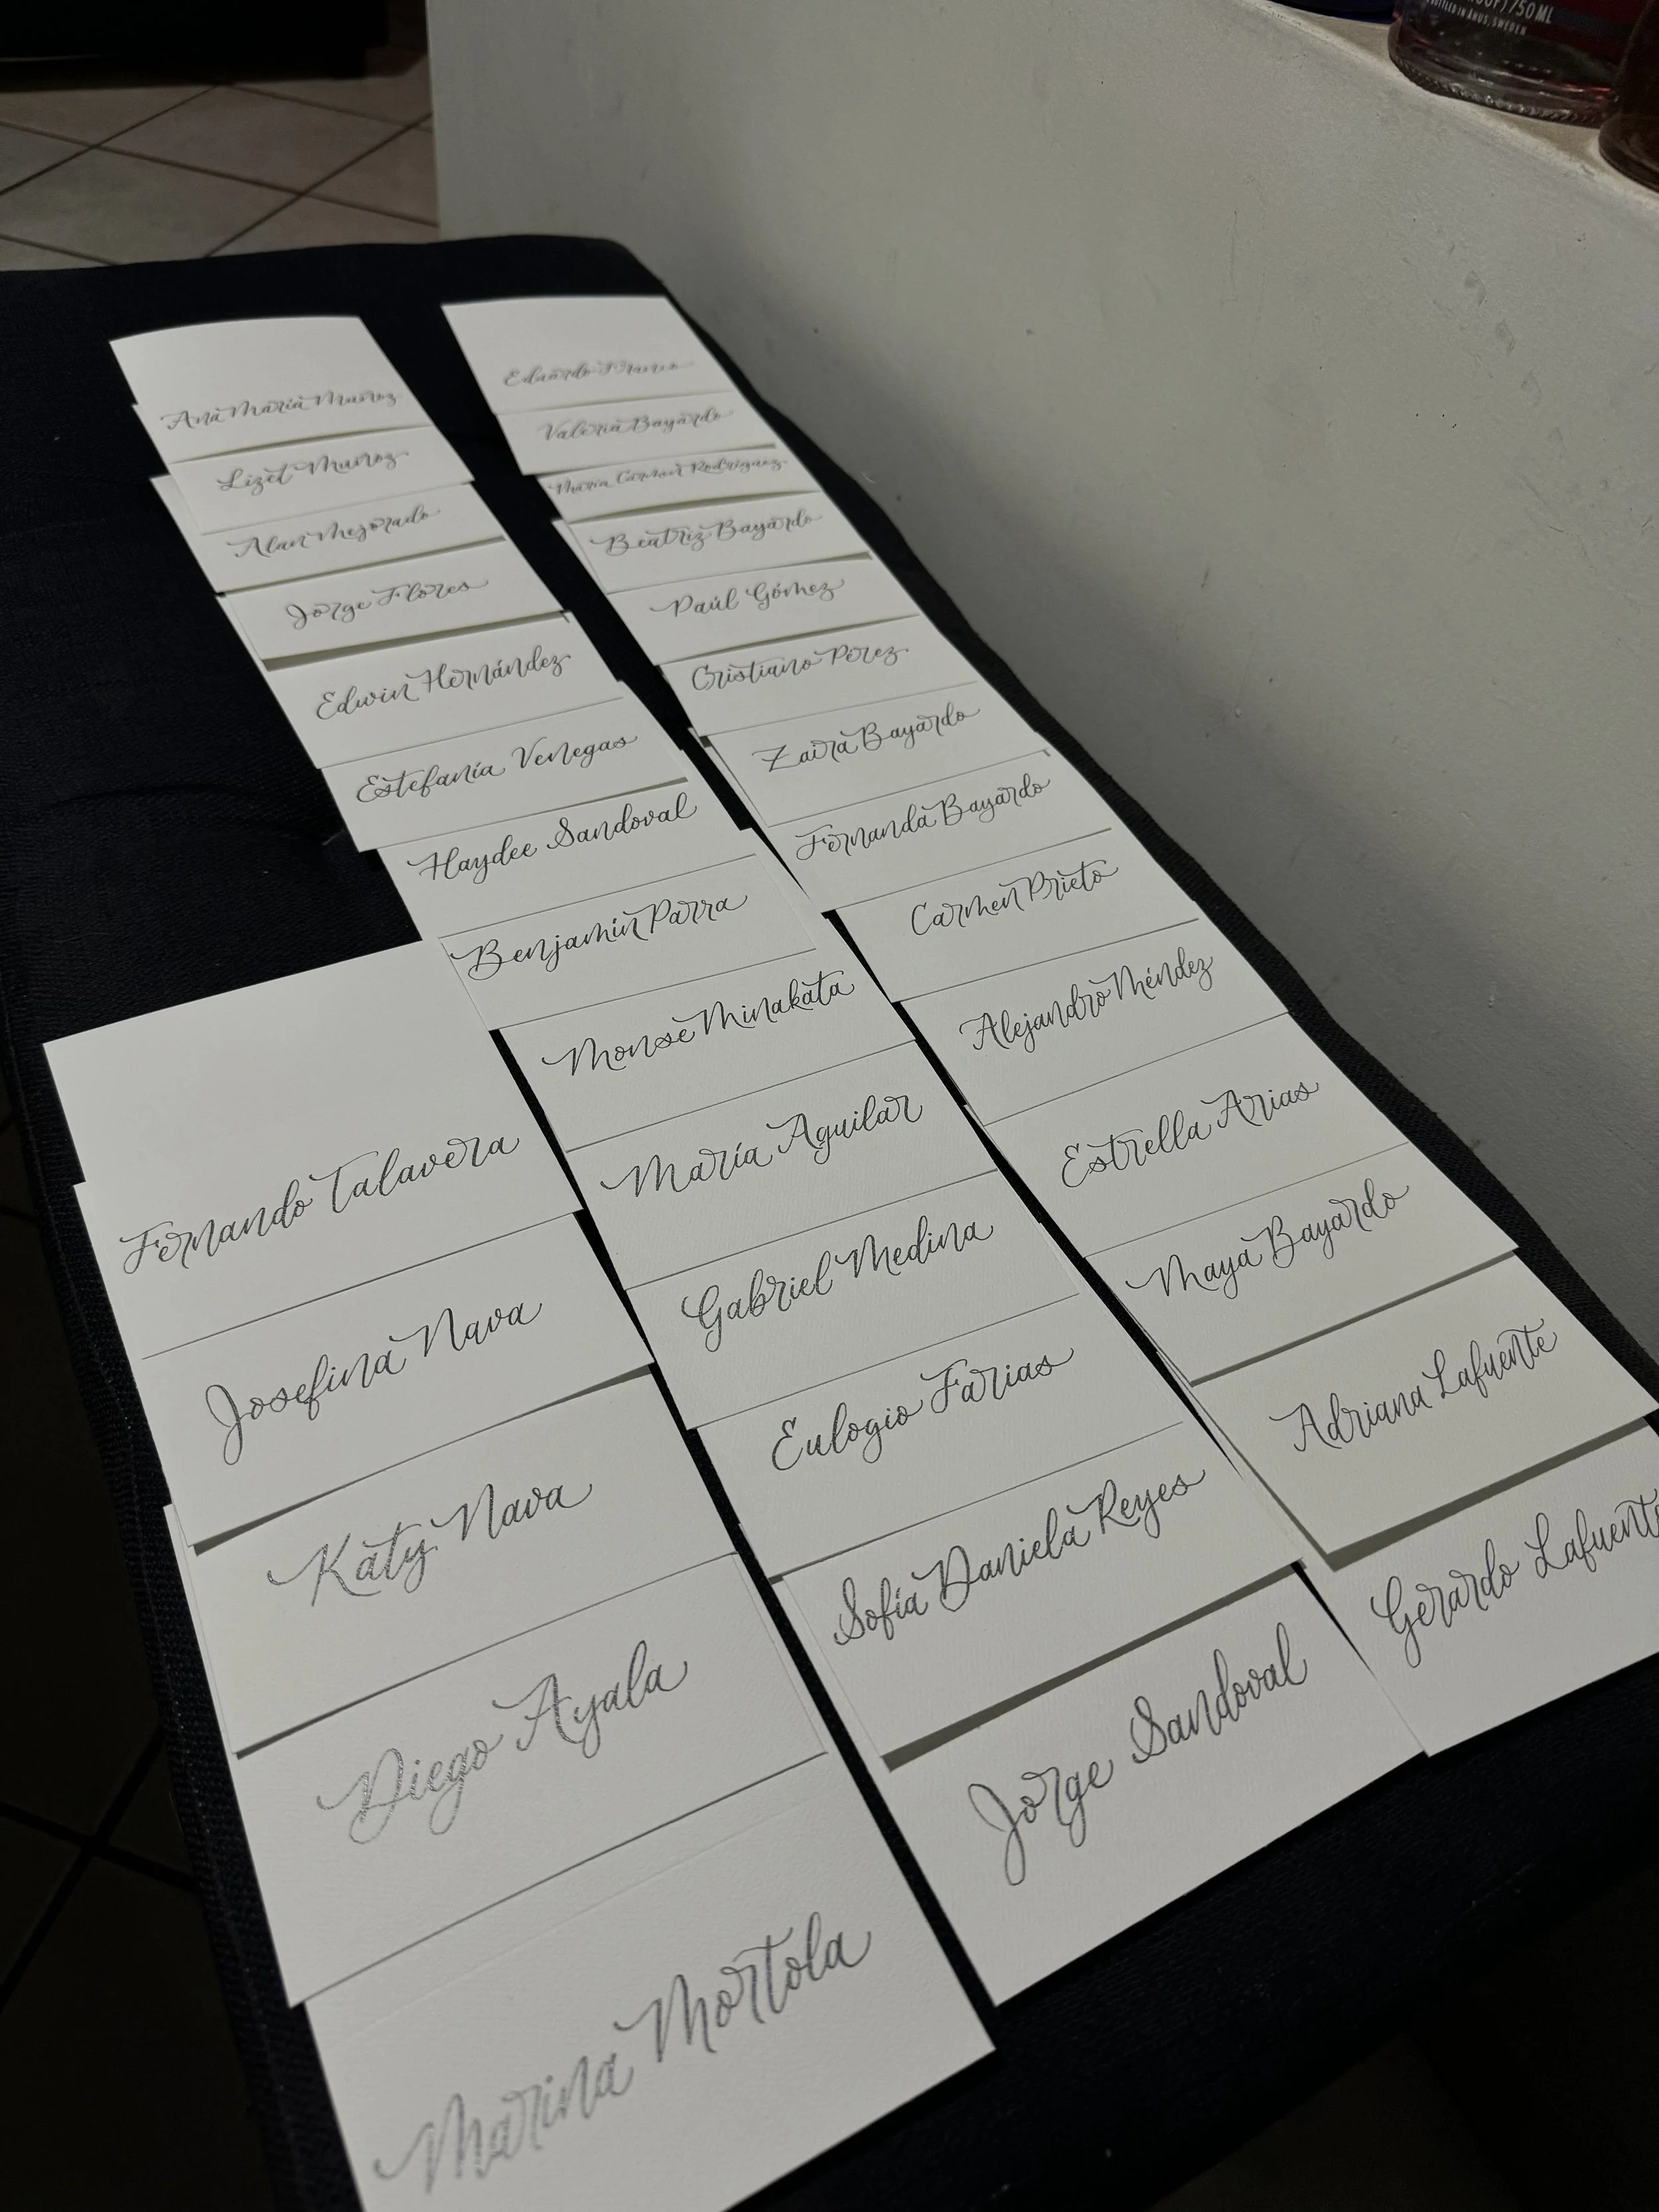 Fernando Talavera
Josefina Nava
Katy Nava
Diego Ayala
Marina Mortola
Ana María Muñoz
Lizet Muñoz
Alan Mejorado
Jorge Flores
Edwin Hernández
Estefanía Venegas
Haydee Sandoval
Benjamín Parra
Monse Minakata
María Aguilar
Gabriel Medina
Eulogio Farias
Sofía Daniela Reyes
Jorge Sandoval
Eduardo
Valeria Bayardo
María Carmen Rodríguez
Beatriz Bayardo
Paúl Gómez
Cristiano Pérez
Zaira Bayardo
Fernanda Bayardo
Carmen Prieto
Alejandro Méndez
Estrella Arias
Maya Bayardo
Adriana Lafuente
Gerardo Lafuente
750ML
AHUS, SWEDEN